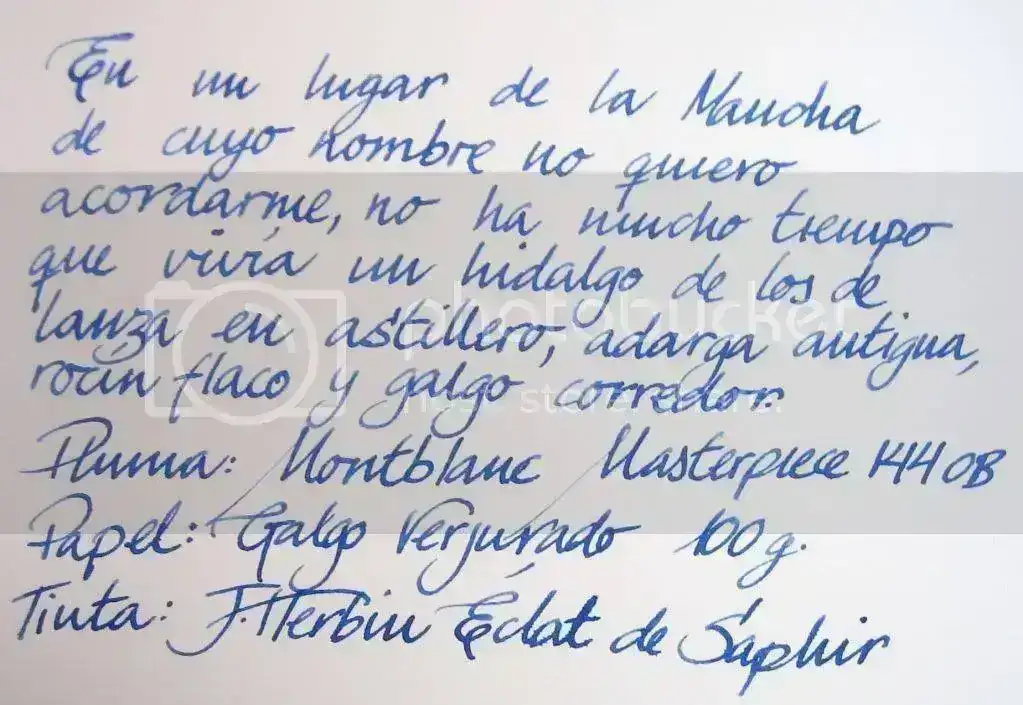 En un lugar de la Mancha
de cuyo nombre no quiero
acordarme, no ha mucho tiempo
que vivía un hidalgo de los de
lanza en astillero, adarga antigua,
rocín flaco y galgo corredor
Pluma: Montblanc Masterpiece 144 OB
Papel: Galgo Verjurado 100 g.
Tinta: J.Herbin Éclat de Saphir
photobucket